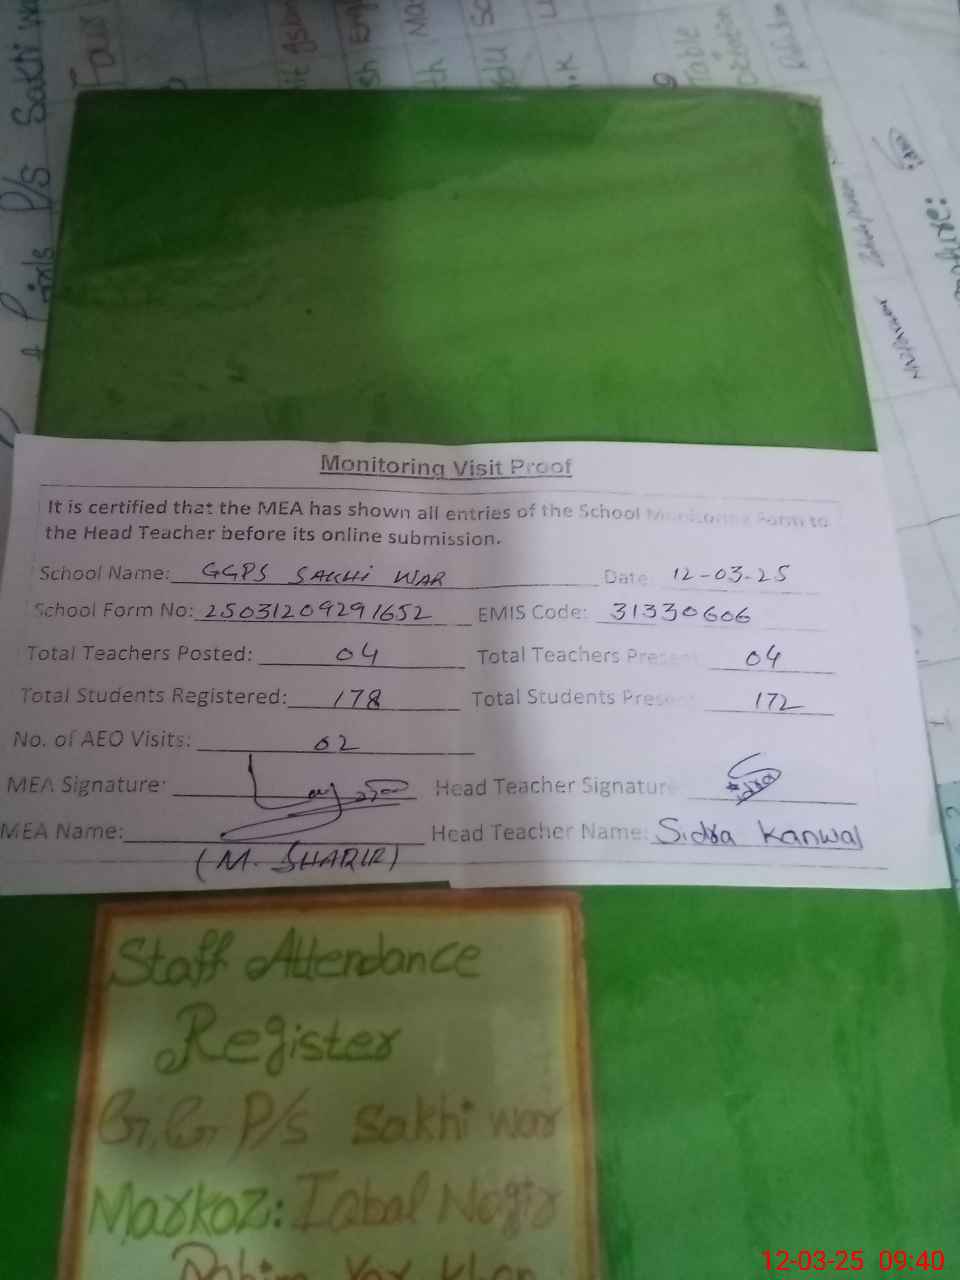 P/S Sakhi war
Monitoring Visit Proof
It is certified that the MEA has shown all entries of the School Monitoring Form to
the Head Teacher before its online submission.
School Name: GGPS SAKHi WAR Date: 12-03-25
School Form No: 25031209291652 EMIS Code: 31330606
Total Teachers Posted: 04 Total Teachers Present 04
Total Students Registered: 178 Total Students Present 172
No. of AEO Visits: 02
MEA Signature: Head Teacher Signature
MEA Name: (M. SHARIR) Head Teacher Name: Sidra Kanwal
Staff Attendance
Register
G.G P/s Sakhi war
Markaz: Iqbal Nagir
Rahim Yar Khan
12-03-25 09:40